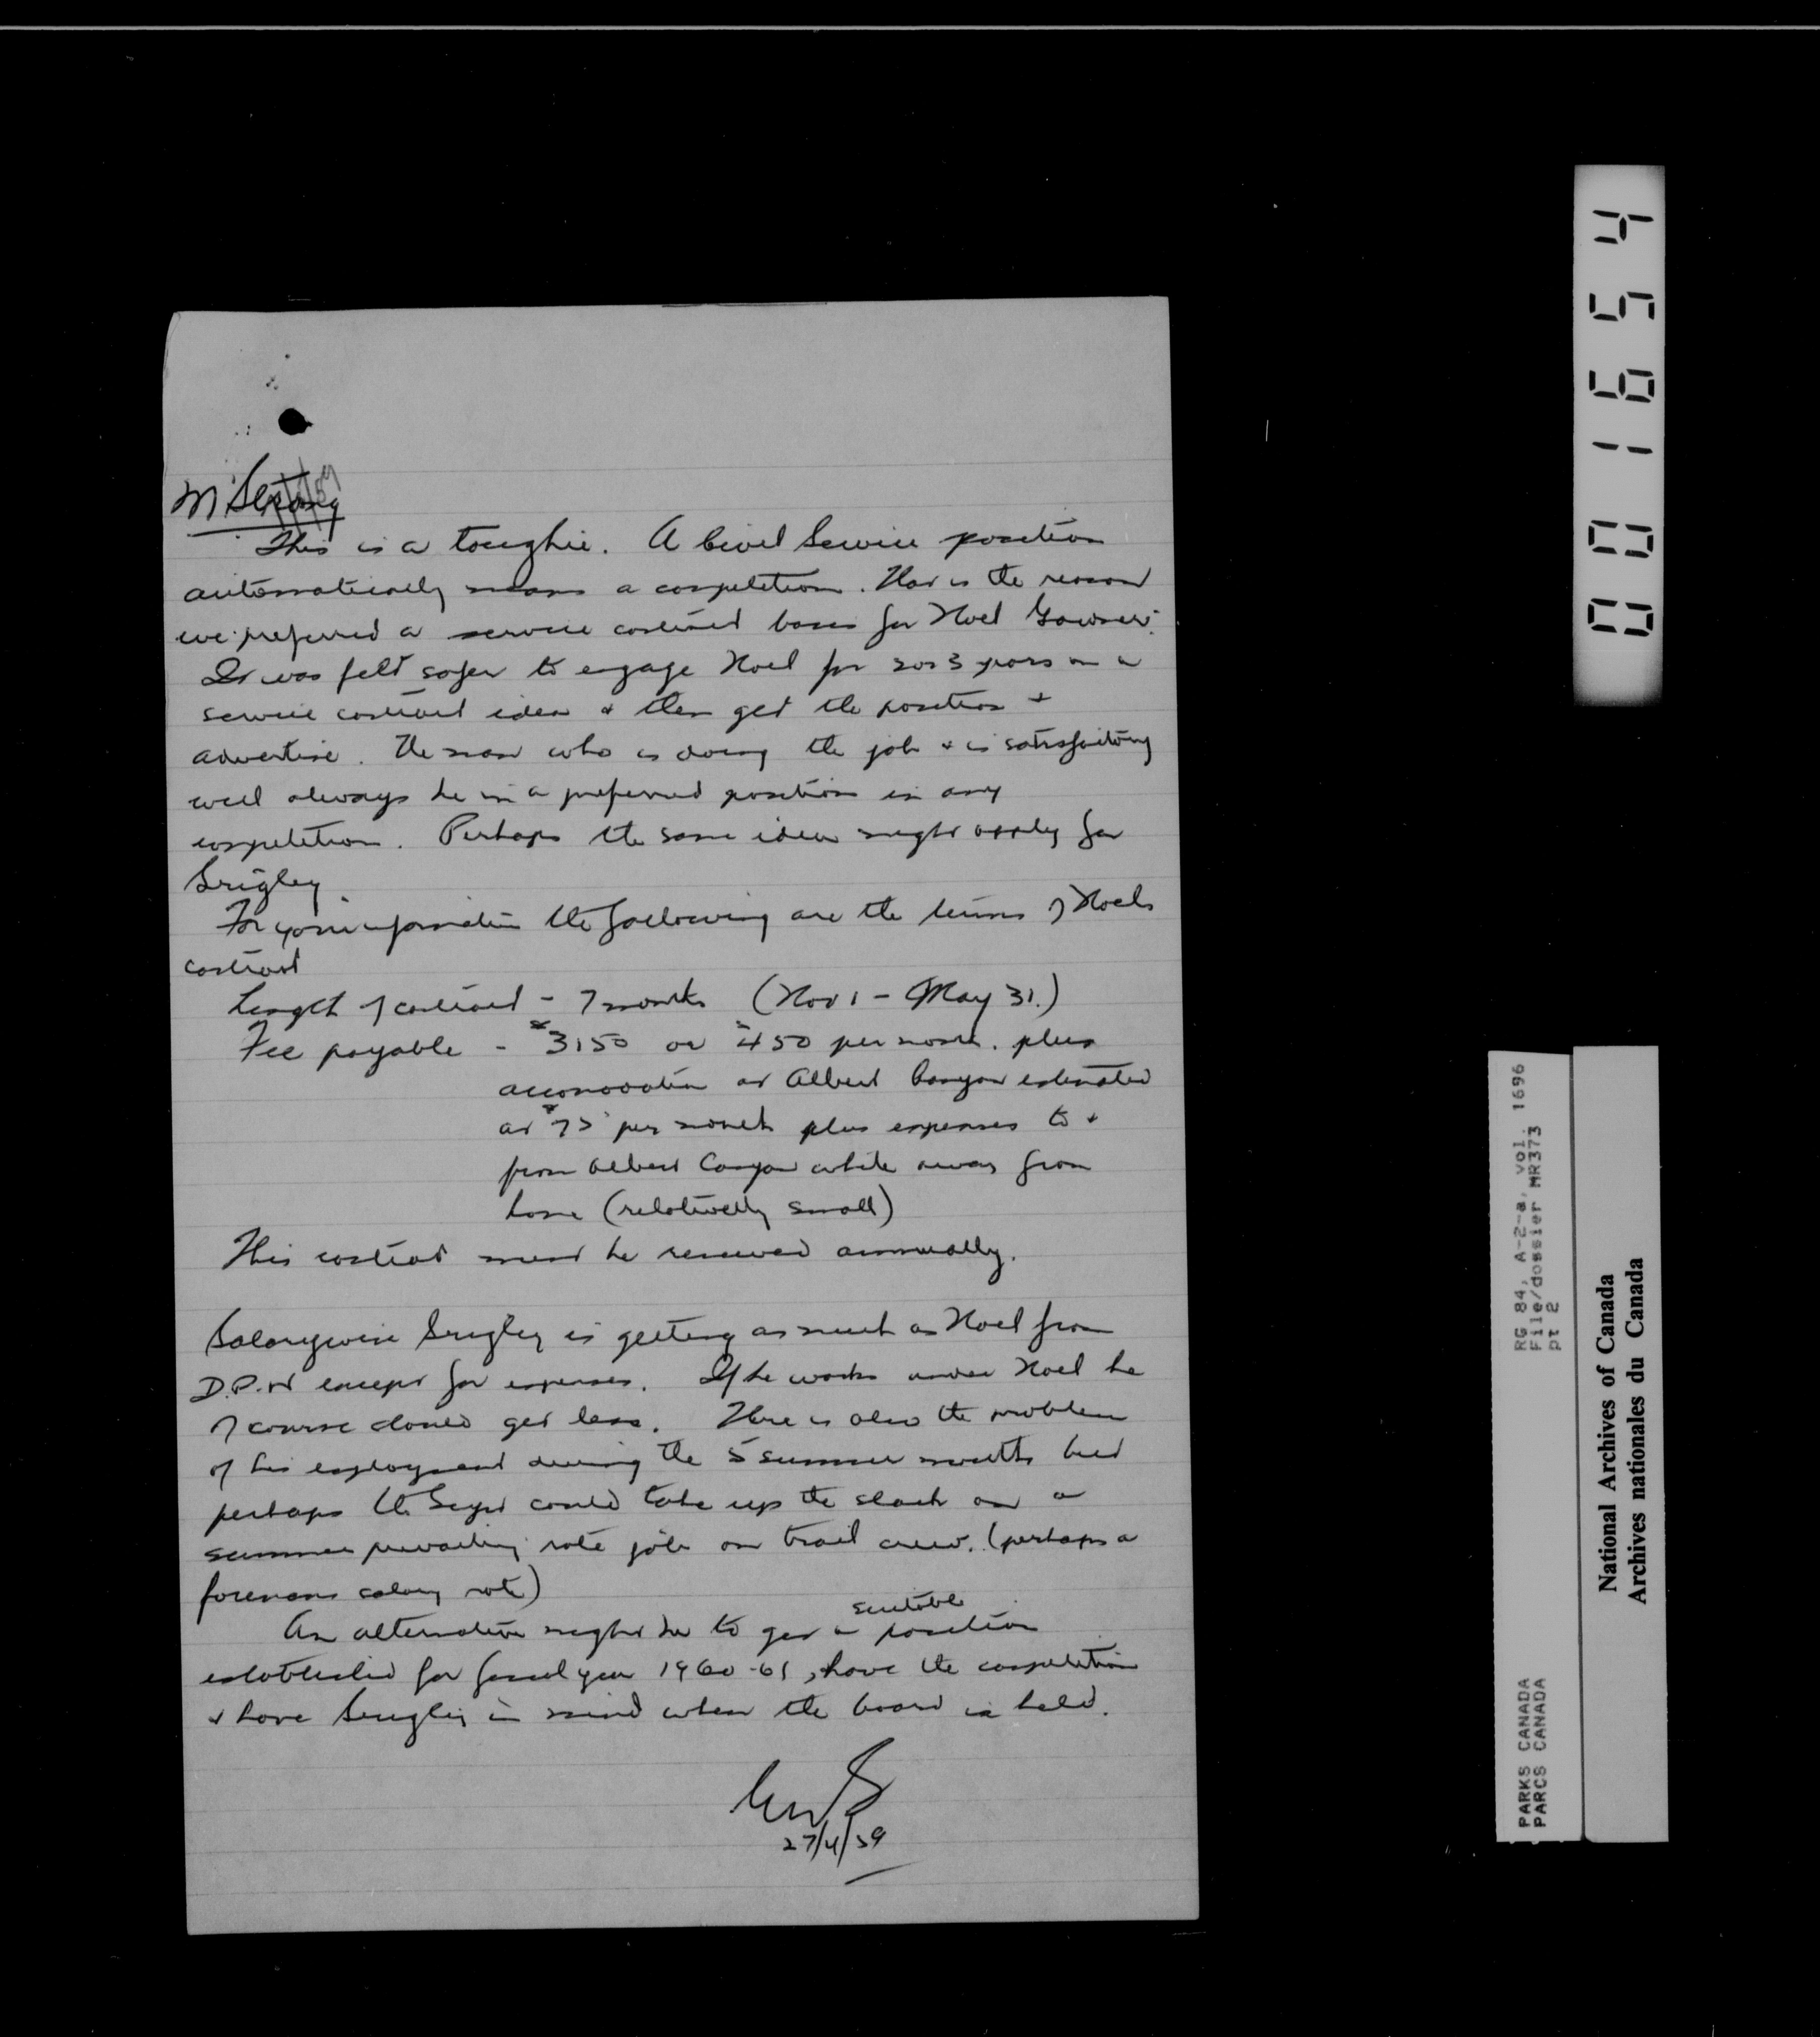 Mr Strong
This is a toughie. A Civil Service position
automatically means a competition. That is the reason
we preferred a service contract basis for Noel Gardner.
It was felt safer to engage Noel for 2 or 3 years on a
service contract idea & then get the position &
advertise. The man who is doing the job & is satisfactory
will always be in a preferred position in any
competition. Perhaps the same idea might apply for
Srigley.
For your information the following are the terms of Noels
contract
Length of contract - 7 months (Nov 1 - May 31.)
Fee payable - $3150 or $450 per month. plus
accomodation at Albert Canyon estimated
at $75 per month plus expenses to &
from Albert Canyon while away from
home (relatively small)
This contract must be renewed annually.
Salarywise Srigley is getting as much as Noel from
D.P.W except for expenses. If he works under Noel he
of course should get less. There is also the problem
of his employment during the 5 summer months but
perhaps the Supt could take up the slack on a
summer prevailing rate job on trail crew. (perhaps a
foremans salary rate)
An alternative might be to get a suitable position
established for fiscal year 1960-61, have the competition
& have Srigley in mind when the board is held.
27/4/59
001654
RG 84, A-2-a, vol. 1696
File/dossier MR373
pt 2
PARKS CANADA
PARCS CANADA
National Archives of Canada
Archives nationales du Canada